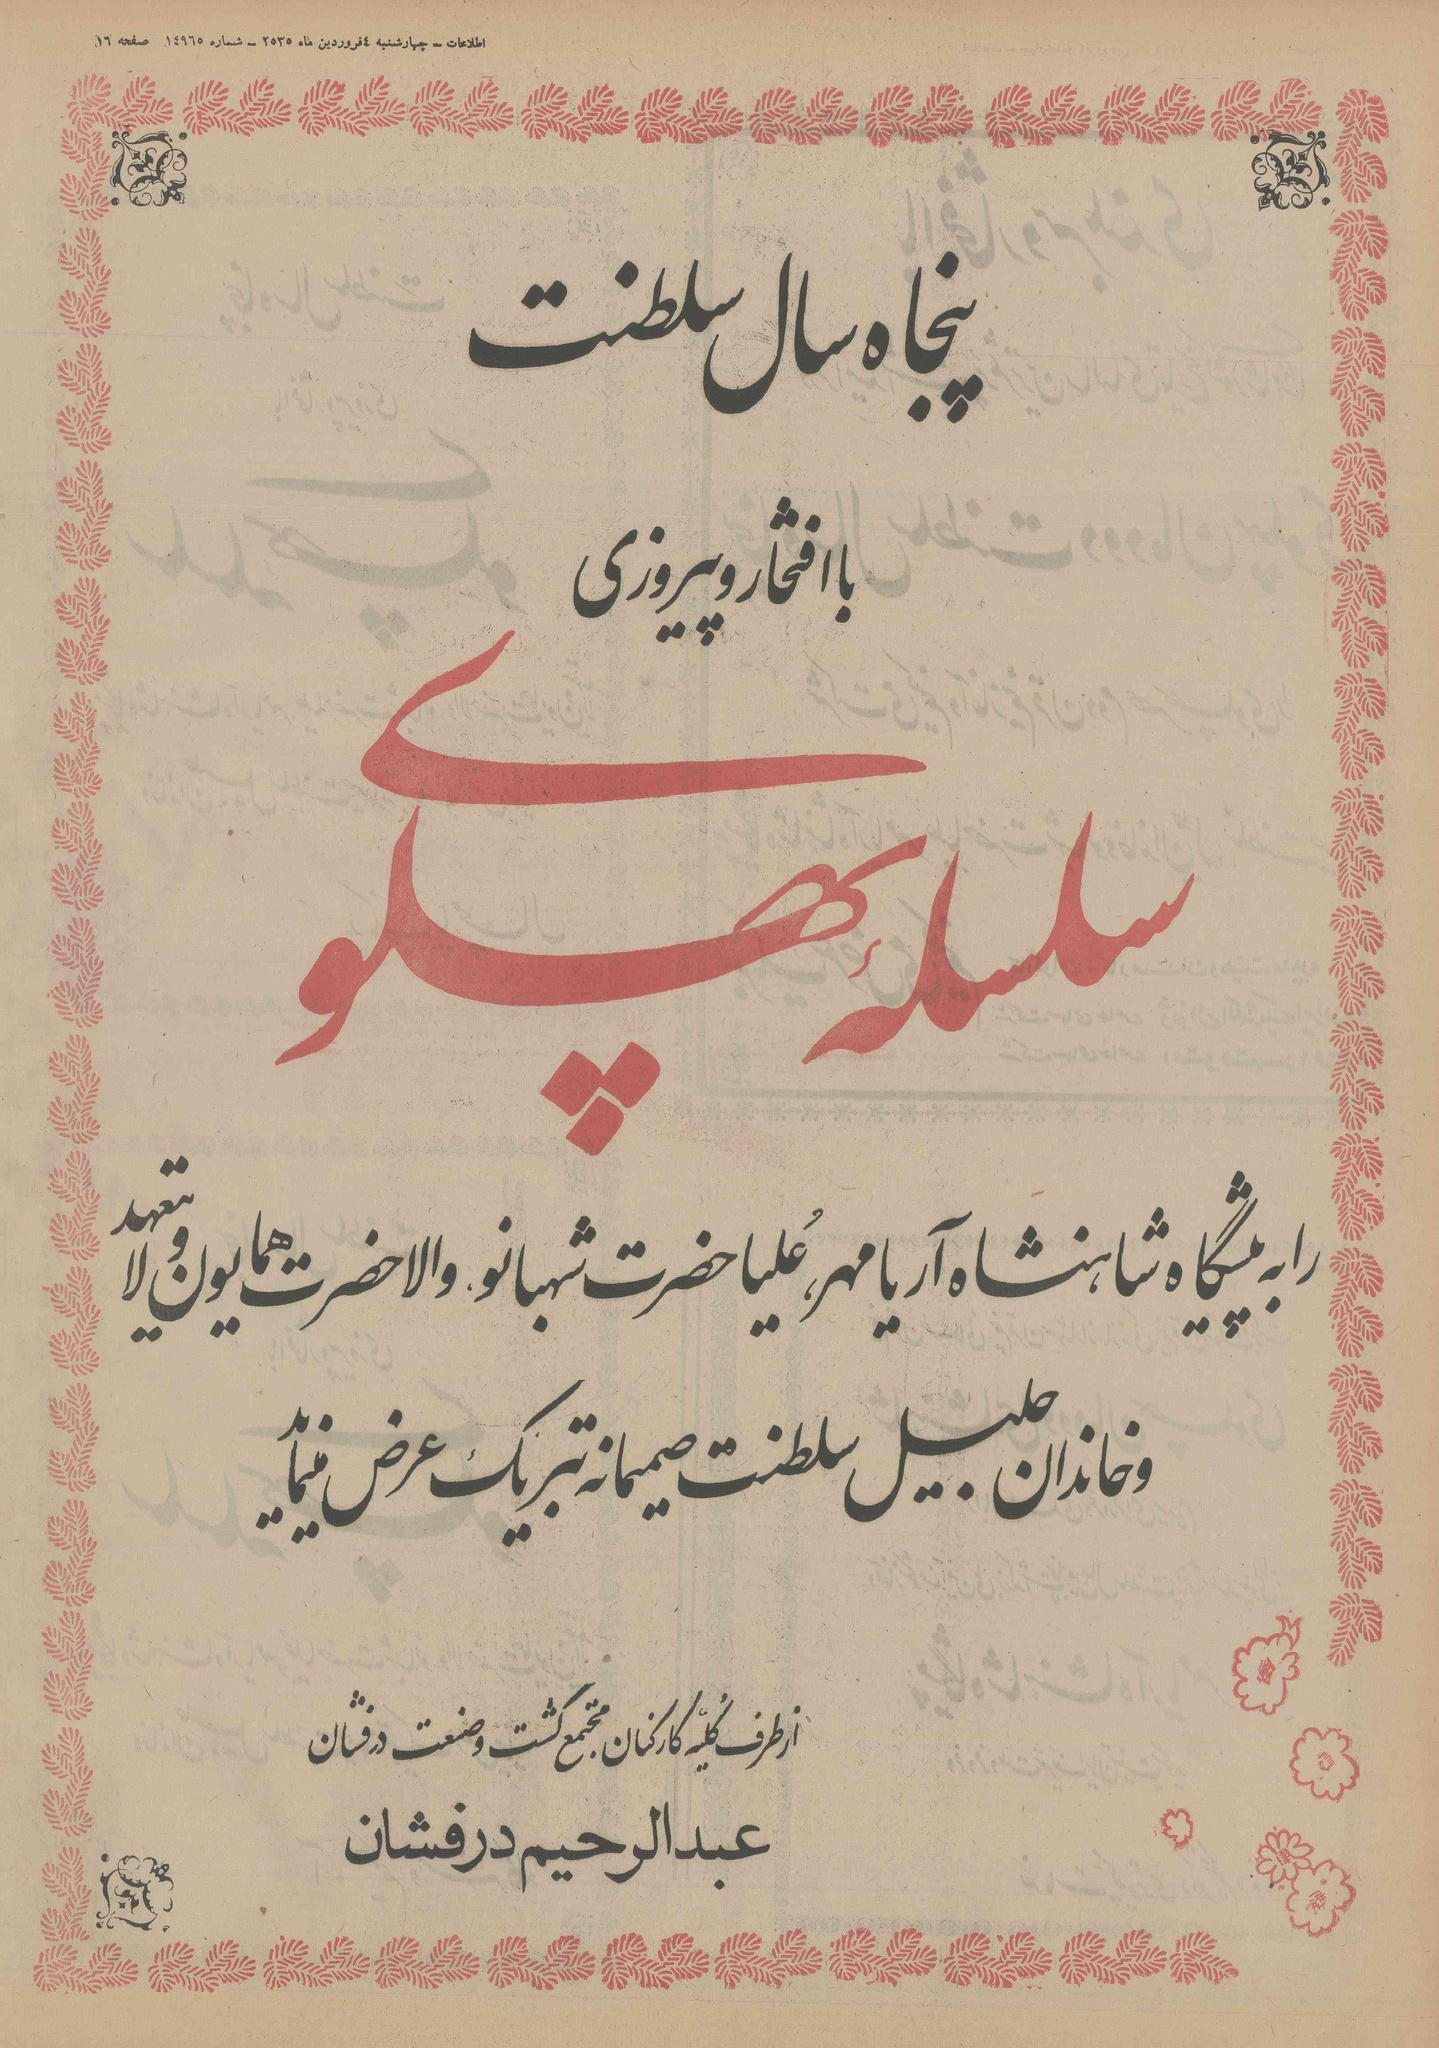 اطلاعات – چهارشنبه ٤ فروردین ماه ٢٥٣٥ – شماره ١٤٩٦٥ صفحه ١٦
پنجاه سال سلطنت
با افتخار و پیروزی
سلسلهٔ پهلوی
را به پیشگاه شاهنشاه آریامهر، عُلیاحضرت شهبانو، والاحضرت همایون ولایتعهد
و خاندان جلیل سلطنت صمیمانه تبریک عرض مینماید
از طرف کُلیّه کارکنان مجتمع کشت و صنعت درفشان
عبدالرحیم درفشان